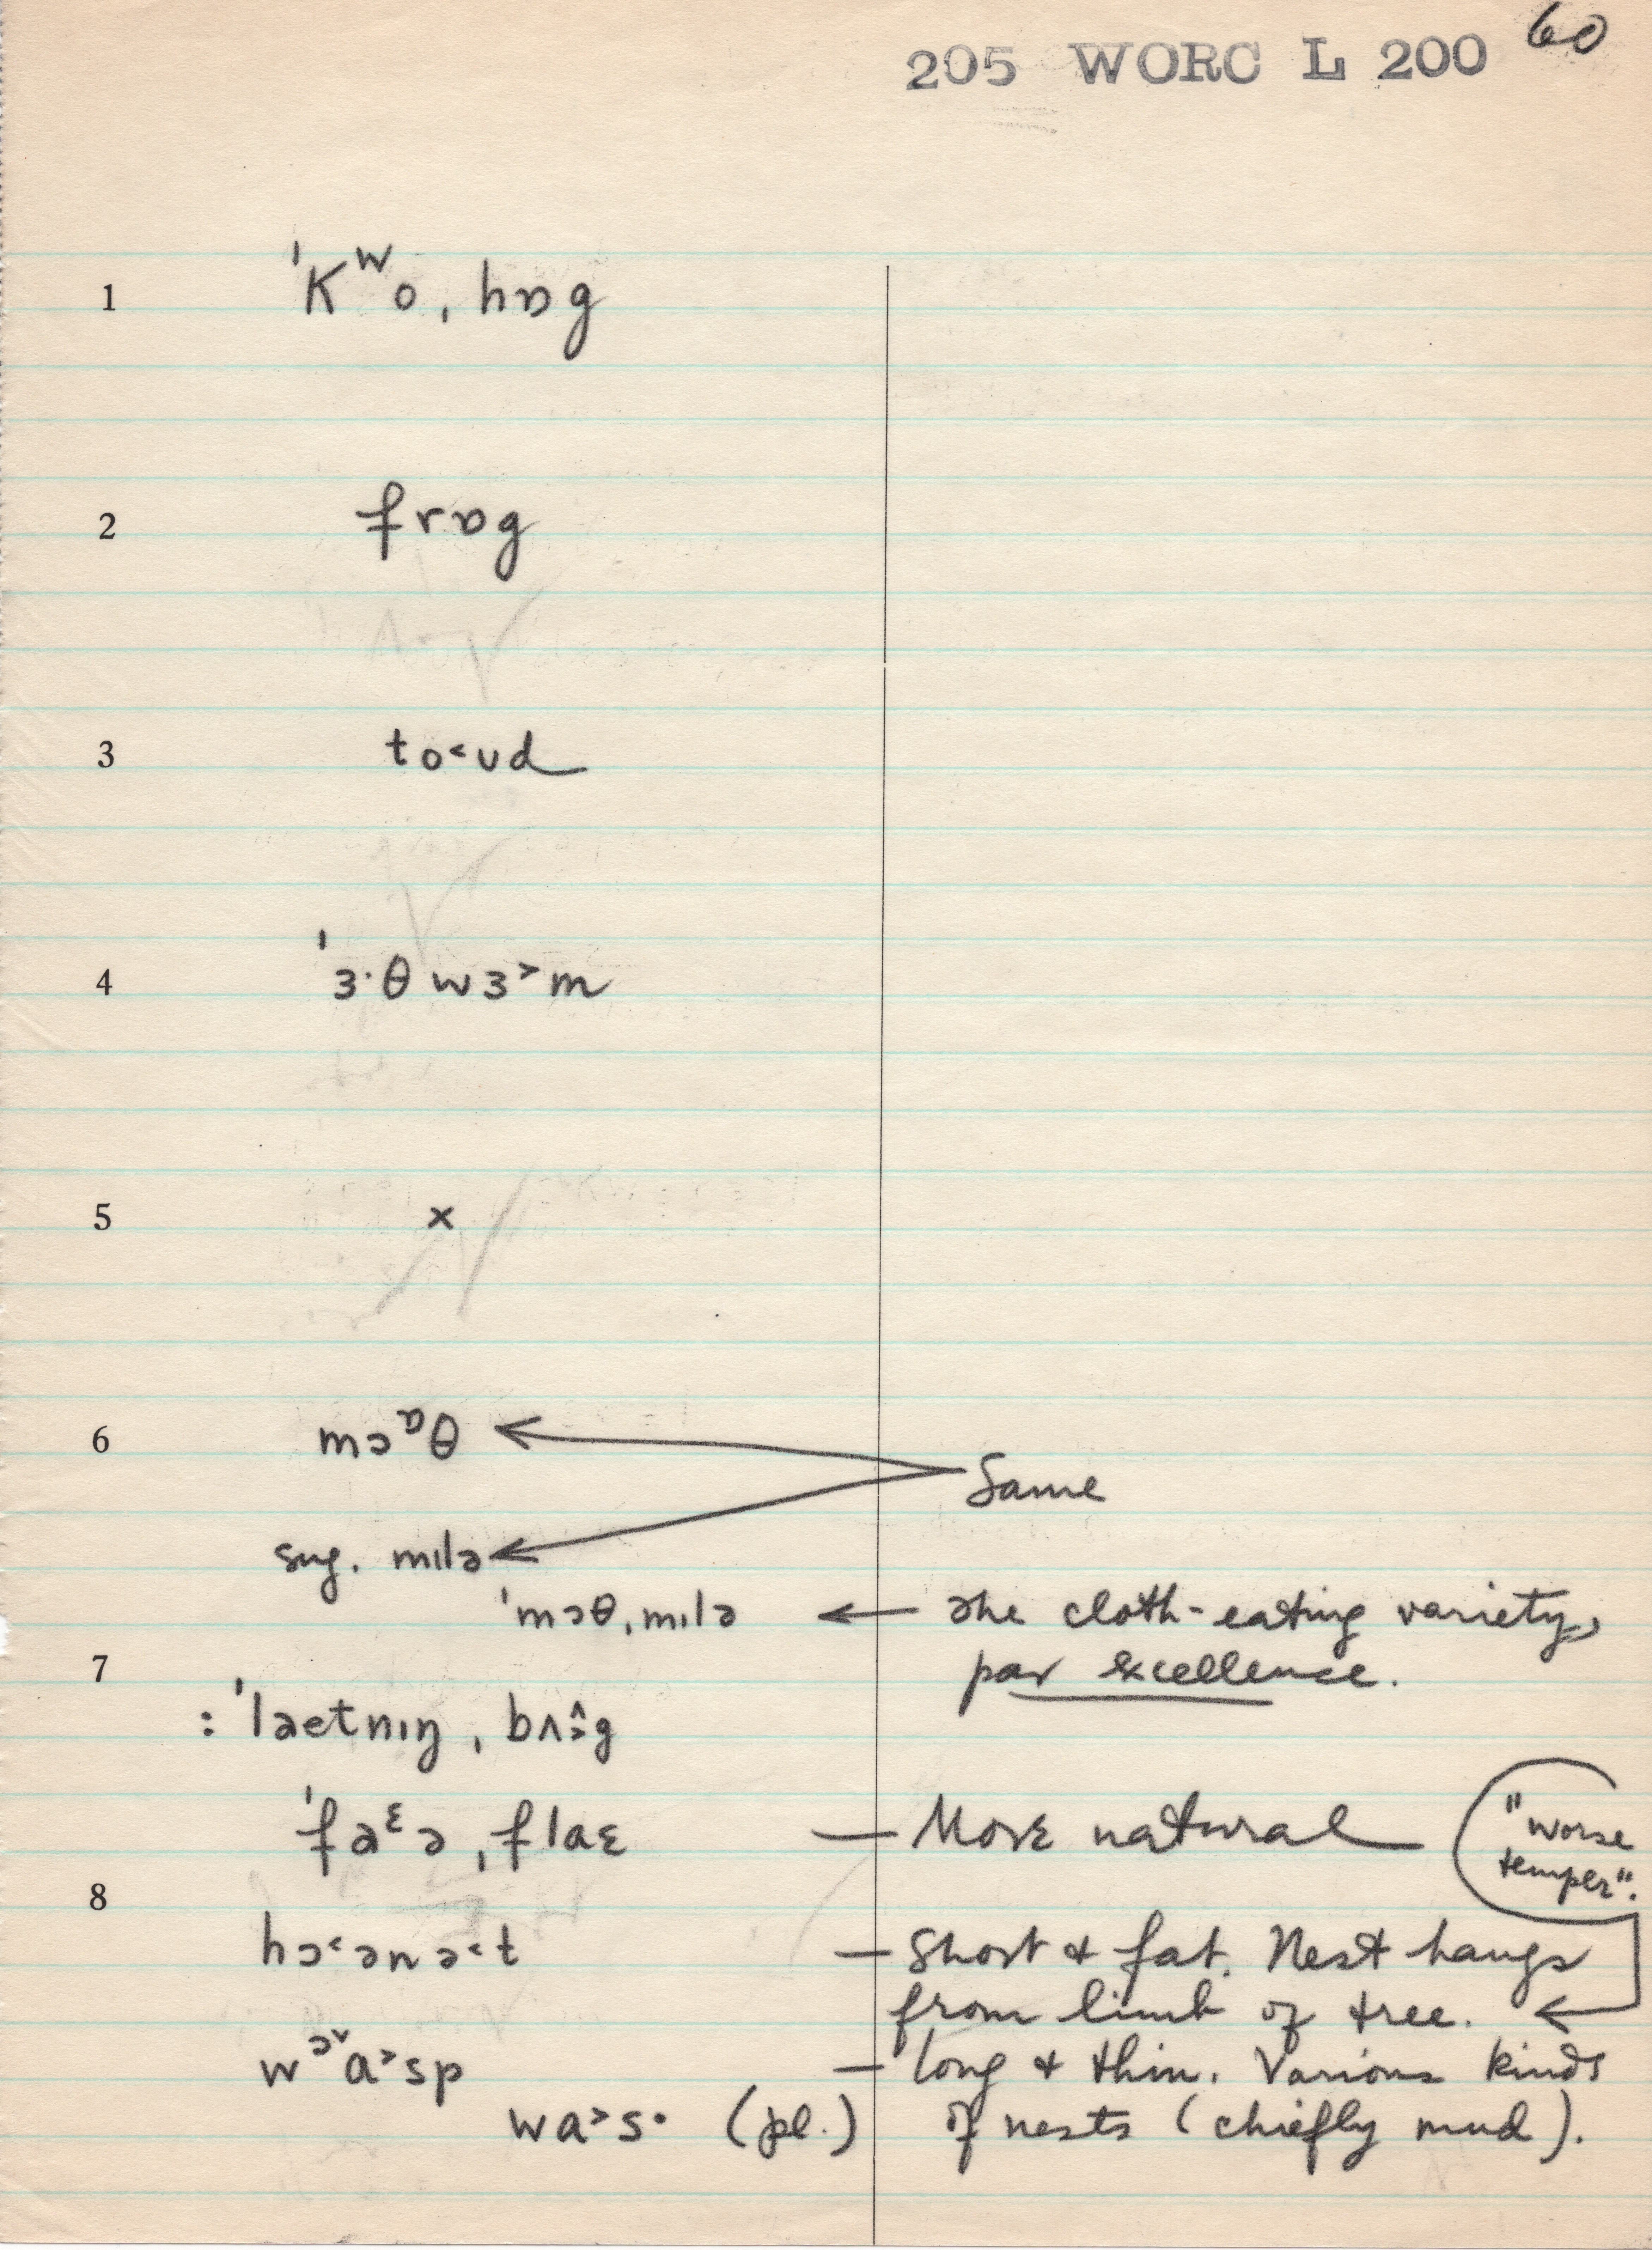 205 WORC L 200 60
1 ˈKʷo, hɒg
2 frɒg
3 to˂ud
4 ˈɜ·θwɜ˃m
5 ×
6 mɔᶛθ
Same
sug. mɪlə
ˈmɔθˌmɪlə ← The cloth-eating variety,
7 par excellence.
: ˈlaetnɪŋˌ bʌ˄˃g
ˈfaᵋəˌflaɛ — More natural "worse
temper".
8
hɔ˂ənə˂t — Short & fat. Nest hangs
from limb of tree.
wᵓˇa˃sp — long & thin. Various kinds
wa˃s· (pl.) of nests (chiefly mud).